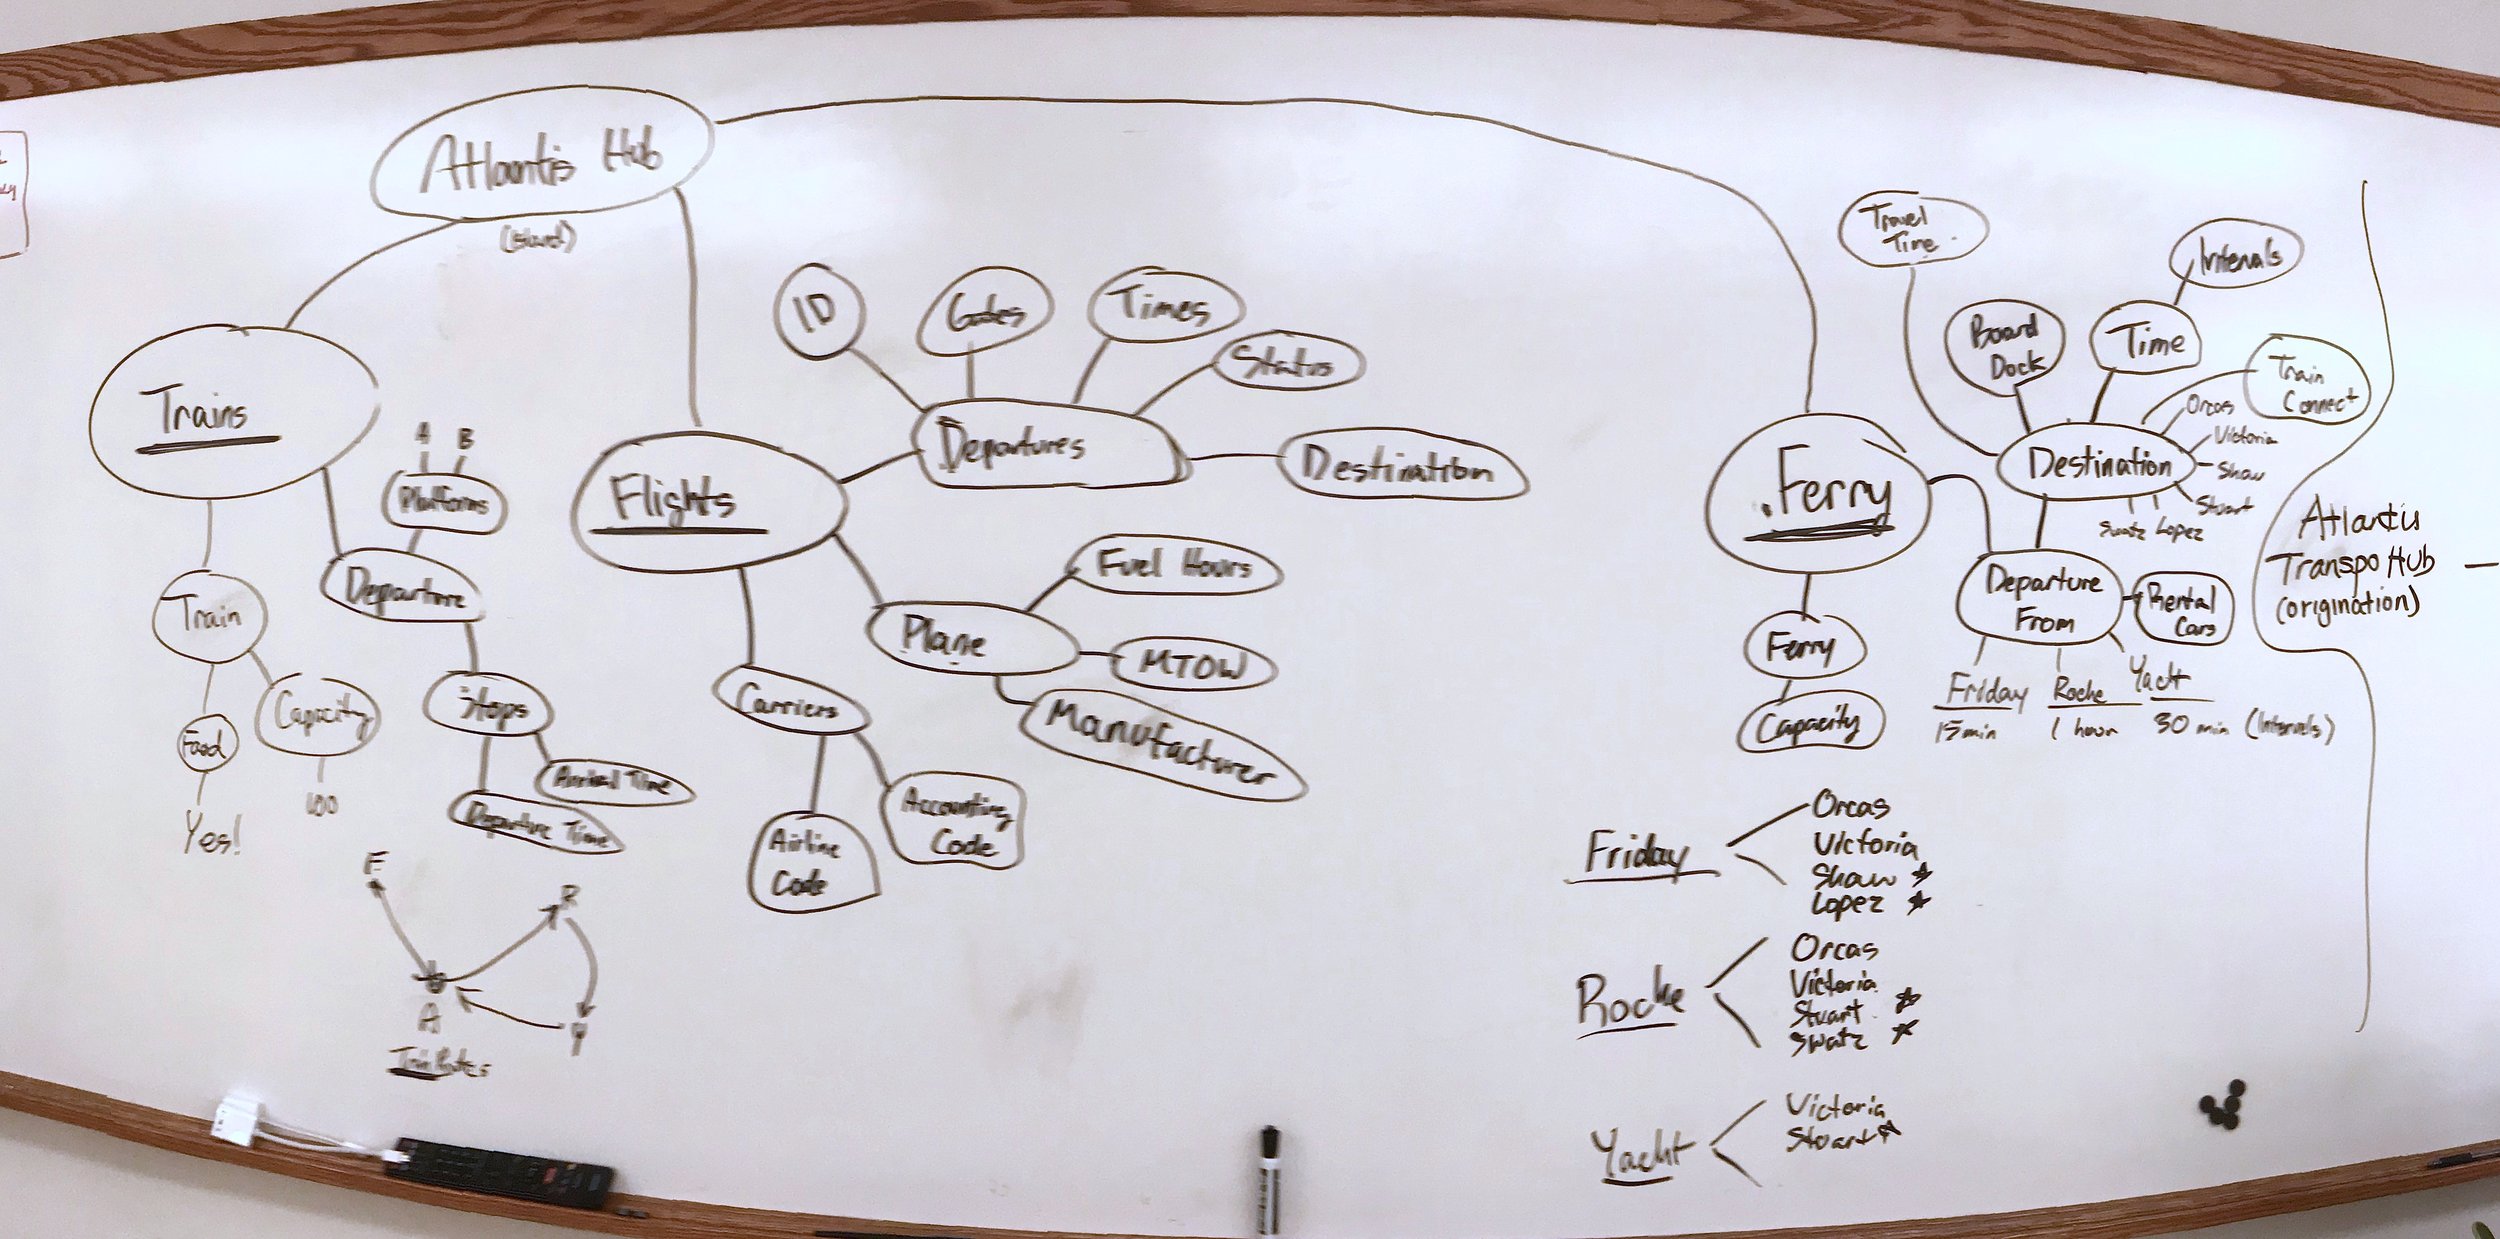 Atlantis Hub
(Island)
Trains
Train
Food
Yes!
Capacity
100
A B
Platforms
Departure
Stops
Arrival Time
Departure Time
F
R
A
Y
Train Routes
Flights
ID
Gates
Times
Status
Departures
Destination
Plane
Fuel Hours
MTOW
Manufacturer
Carriers
Airline
Code
Accounting
Code
Ferry
Ferry
Capacity
Travel
Time
Board
Dock
Time
Intervals
Train
Connect
Destination
Orcas
Victoria
Shaw
Stuart
Lopez
Swatz
Departure
From
Rental
Cars
Friday
15 min
Roche
1 hour
Yacht
30 min (Intervals)
Atlantis
Transpo Hub
(origination)
Friday
Orcas
Victoria
Shaw ☆
Lopez ☆
Roche
Orcas
Victoria
Stuart ☆
Swatz ☆
Yacht
Victoria
Stuart ☆